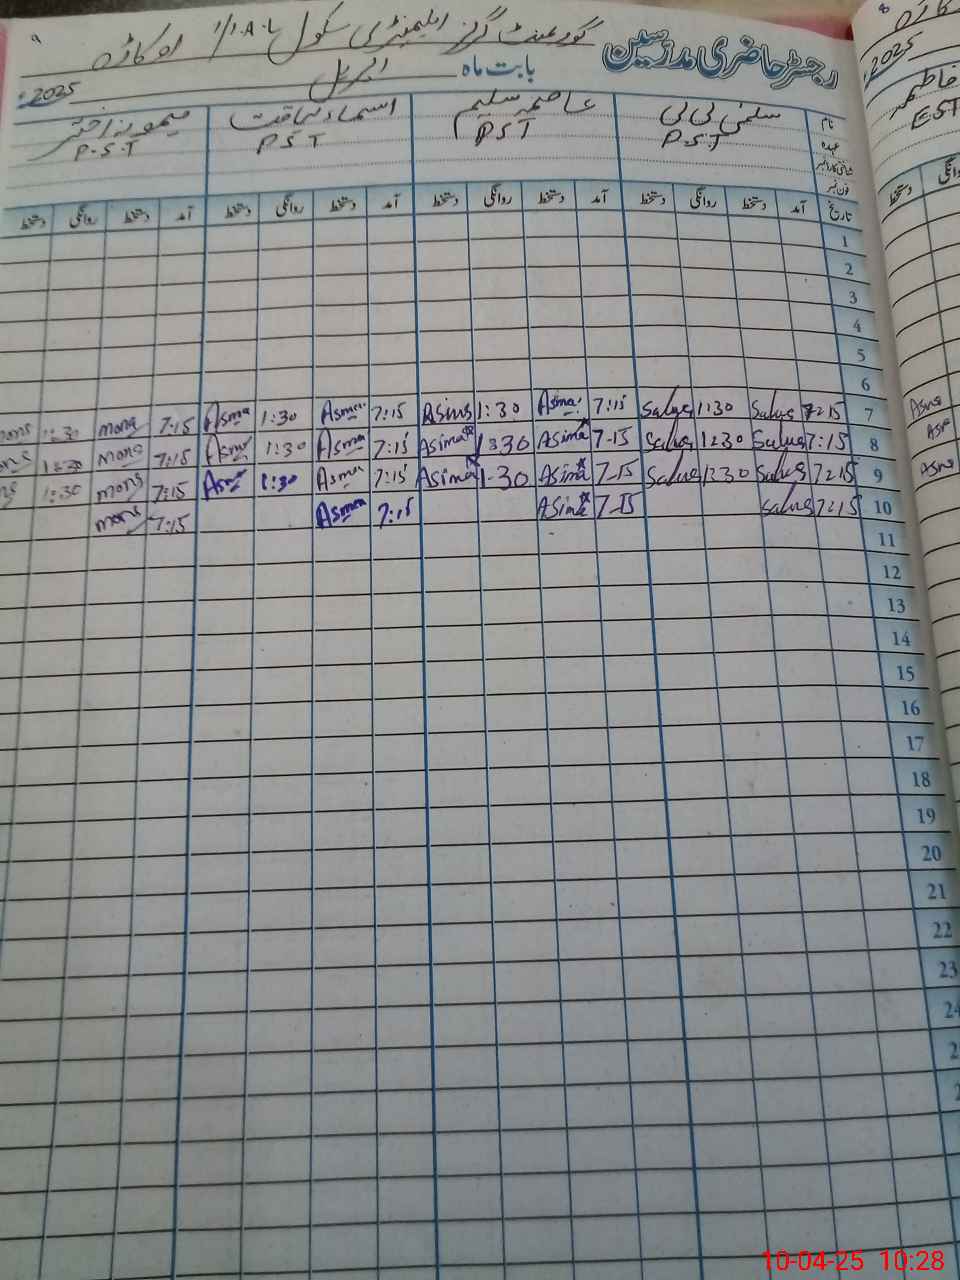 رجسٹر حاضری مدرسین گورنمنٹ گرلز ایلیمنٹری سکول 1/1.A.L اوکاڑہ
بابت ماہ اپریل 2025ء
نام سلمیٰ بی بی عاصمہ سلیم اسماء لیاقت میمونہ اختر
عہدہ P.S.T PST PST P.S.T
شناختی کارڈ نمبر
فون نمبر
تاریخ آمد دستخط روانگی دستخط آمد دستخط روانگی دستخط آمد دستخط روانگی دستخط آمد دستخط روانگی دستخط
1
2
3
4
5
6
7 7:15 Salma 1:30 Salma 7:15 Asma 1:30 Asima 7:15 Asma 1:30 Asma 7:15 mona 1:30 mona
8 7:15 Salma 1:30 Salma 7-15 Asima 1:30 Asima 7:15 Asma 1:30 Asma 7:15 mona 1:30 mona
9 7:15 Salma 1:30 Salma 7-15 Asima 1-30 Asima 7:15 Asma 1:30 Asma 7:15 mona 1:30
10 7:15 Salma 7-15 Asima 7:15 Asma 7:15 mona
11
12
13
14
15
16
17
18
19
20
21
22
23
24
8
2025
فاطمہ
EST
دستخط
Asma
Asma
10-04-25 10:28